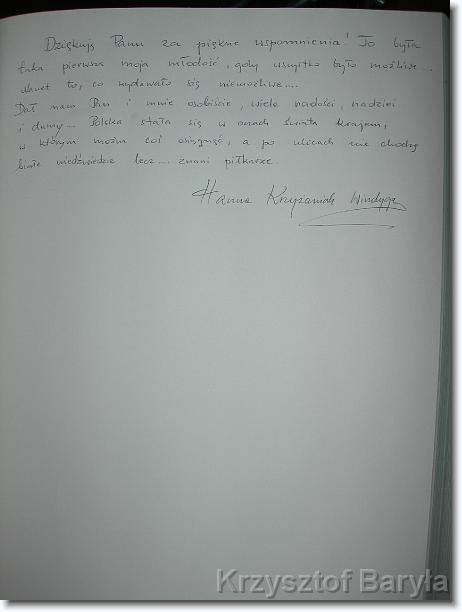 Dziękuję Panu za piękne wspomnienia! To była
taka pierwsza moja młodość, gdy wszystko było możliwe...
nawet to, co wydawało się niemożliwe....
Dał nam Pan i mnie osobiście, wiele radości, nadziei
i dumy... Polska stała się w oczach świata krajem,
w którym można coś osiągnąć, a po ulicach nie chodzą
białe niedźwiedzie lecz.... znani piłkarze.
Hanna Krzyżaniak Windyga
Krzysztof Baryła